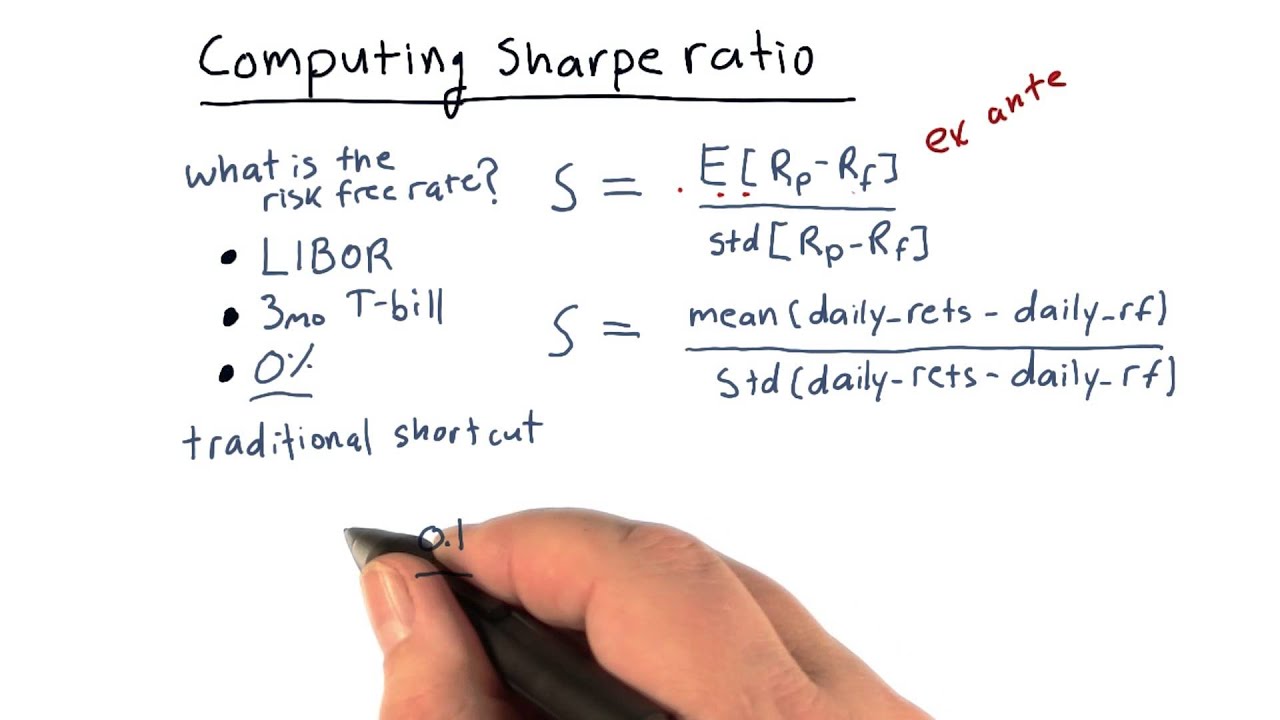 Computing Sharpe ratio
ex ante
what is the
risk free rate?
• LIBOR
• 3mo T-bill
• 0%
traditional shortcut
S = E[Rp-Rf]
std[Rp-Rf]
S = mean(daily_rets - daily_rf)
Std(daily-rets - daily_rf)
0.1